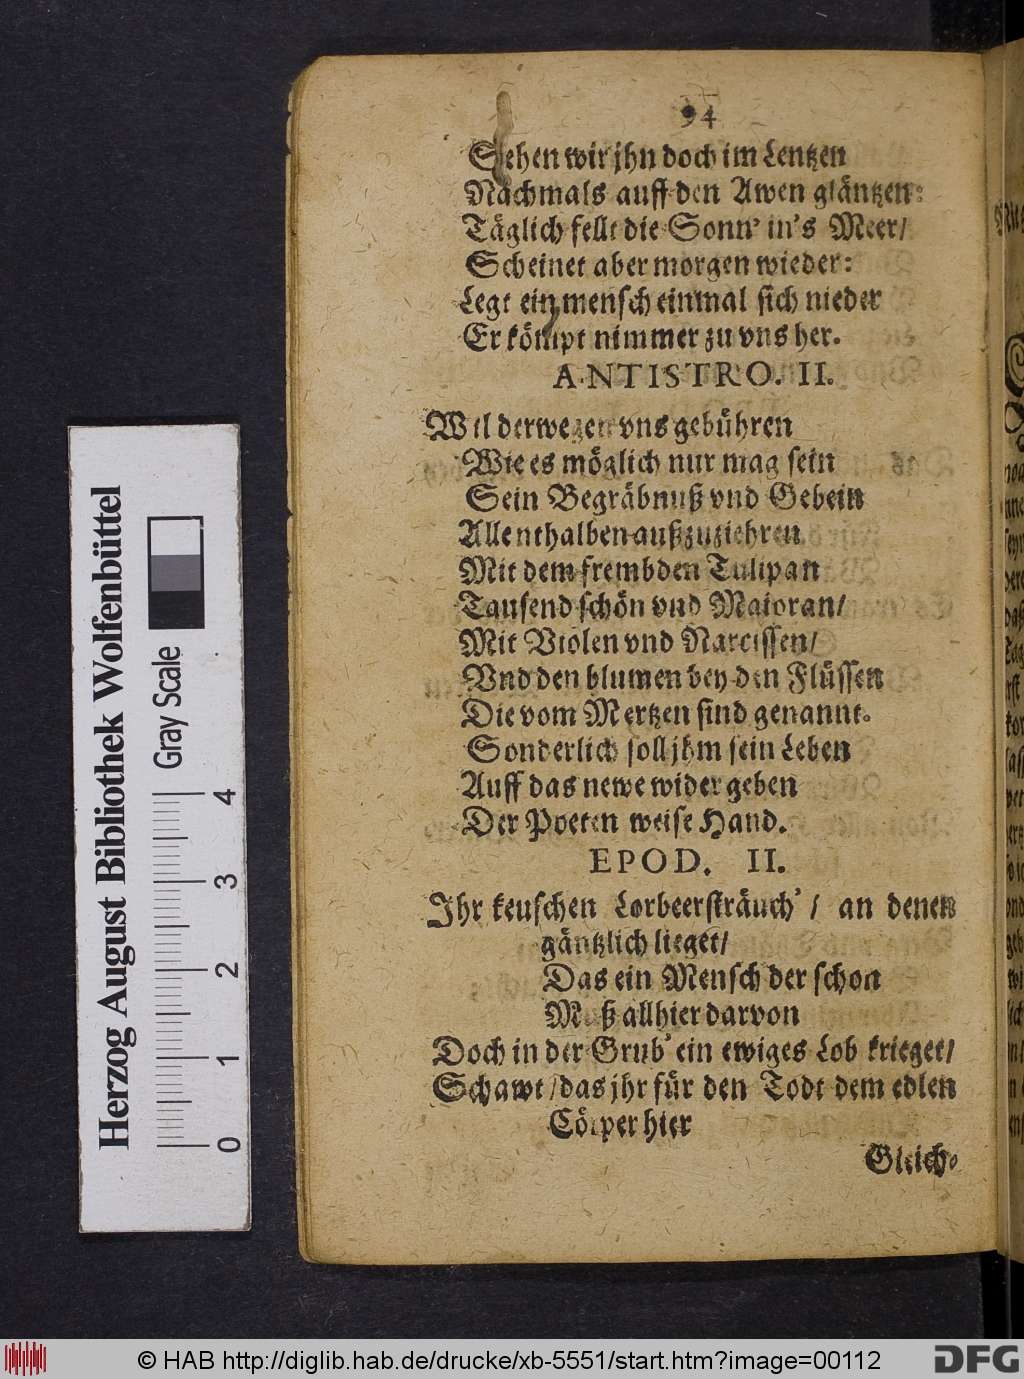 94
Sehen wir jhn doch im Lentzen
Nachmals auff den Awen gläntzen:
Täglich fellt die Sonn' in's Meer/
Scheinet aber morgen wieder:
Legt ein mensch einmal sich nieder
Er kömpt nimmer zu vns her.
ANTISTRO. II.
Wil derwegen vns gebühren
Wie es möglich nur mag sein
Sein Begräbnuß vnd Gebein
Allenthalben außzuziehren
Mit dem frembden Tulipan
Tausend schön vnd Maioran/
Mit Violen vnd Narcissen/
Vnd den blumen bey den Flüssen
Die vom Mertzen sind genannt.
Sonderlich soll jhm sein Leben
Auff das newe wider geben
Der Poeten weise Hand.
EPOD. II.
Ihr keuschen Lorbeersträuch' / an denen
gäntzlich lieget/
Das ein Mensch der schon
Muß allhier darvon
Doch in der Grub' ein ewiges Lob krieget/
Schawt / das jhr für den Todt dem edlen
Cörper hier
Gleich-
Herzog August Bibliothek Wolfenbüttel
Gray Scale
0 1 2 3 4
© HAB http://diglib.hab.de/drucke/xb-5551/start.htm?image=00112
DFG